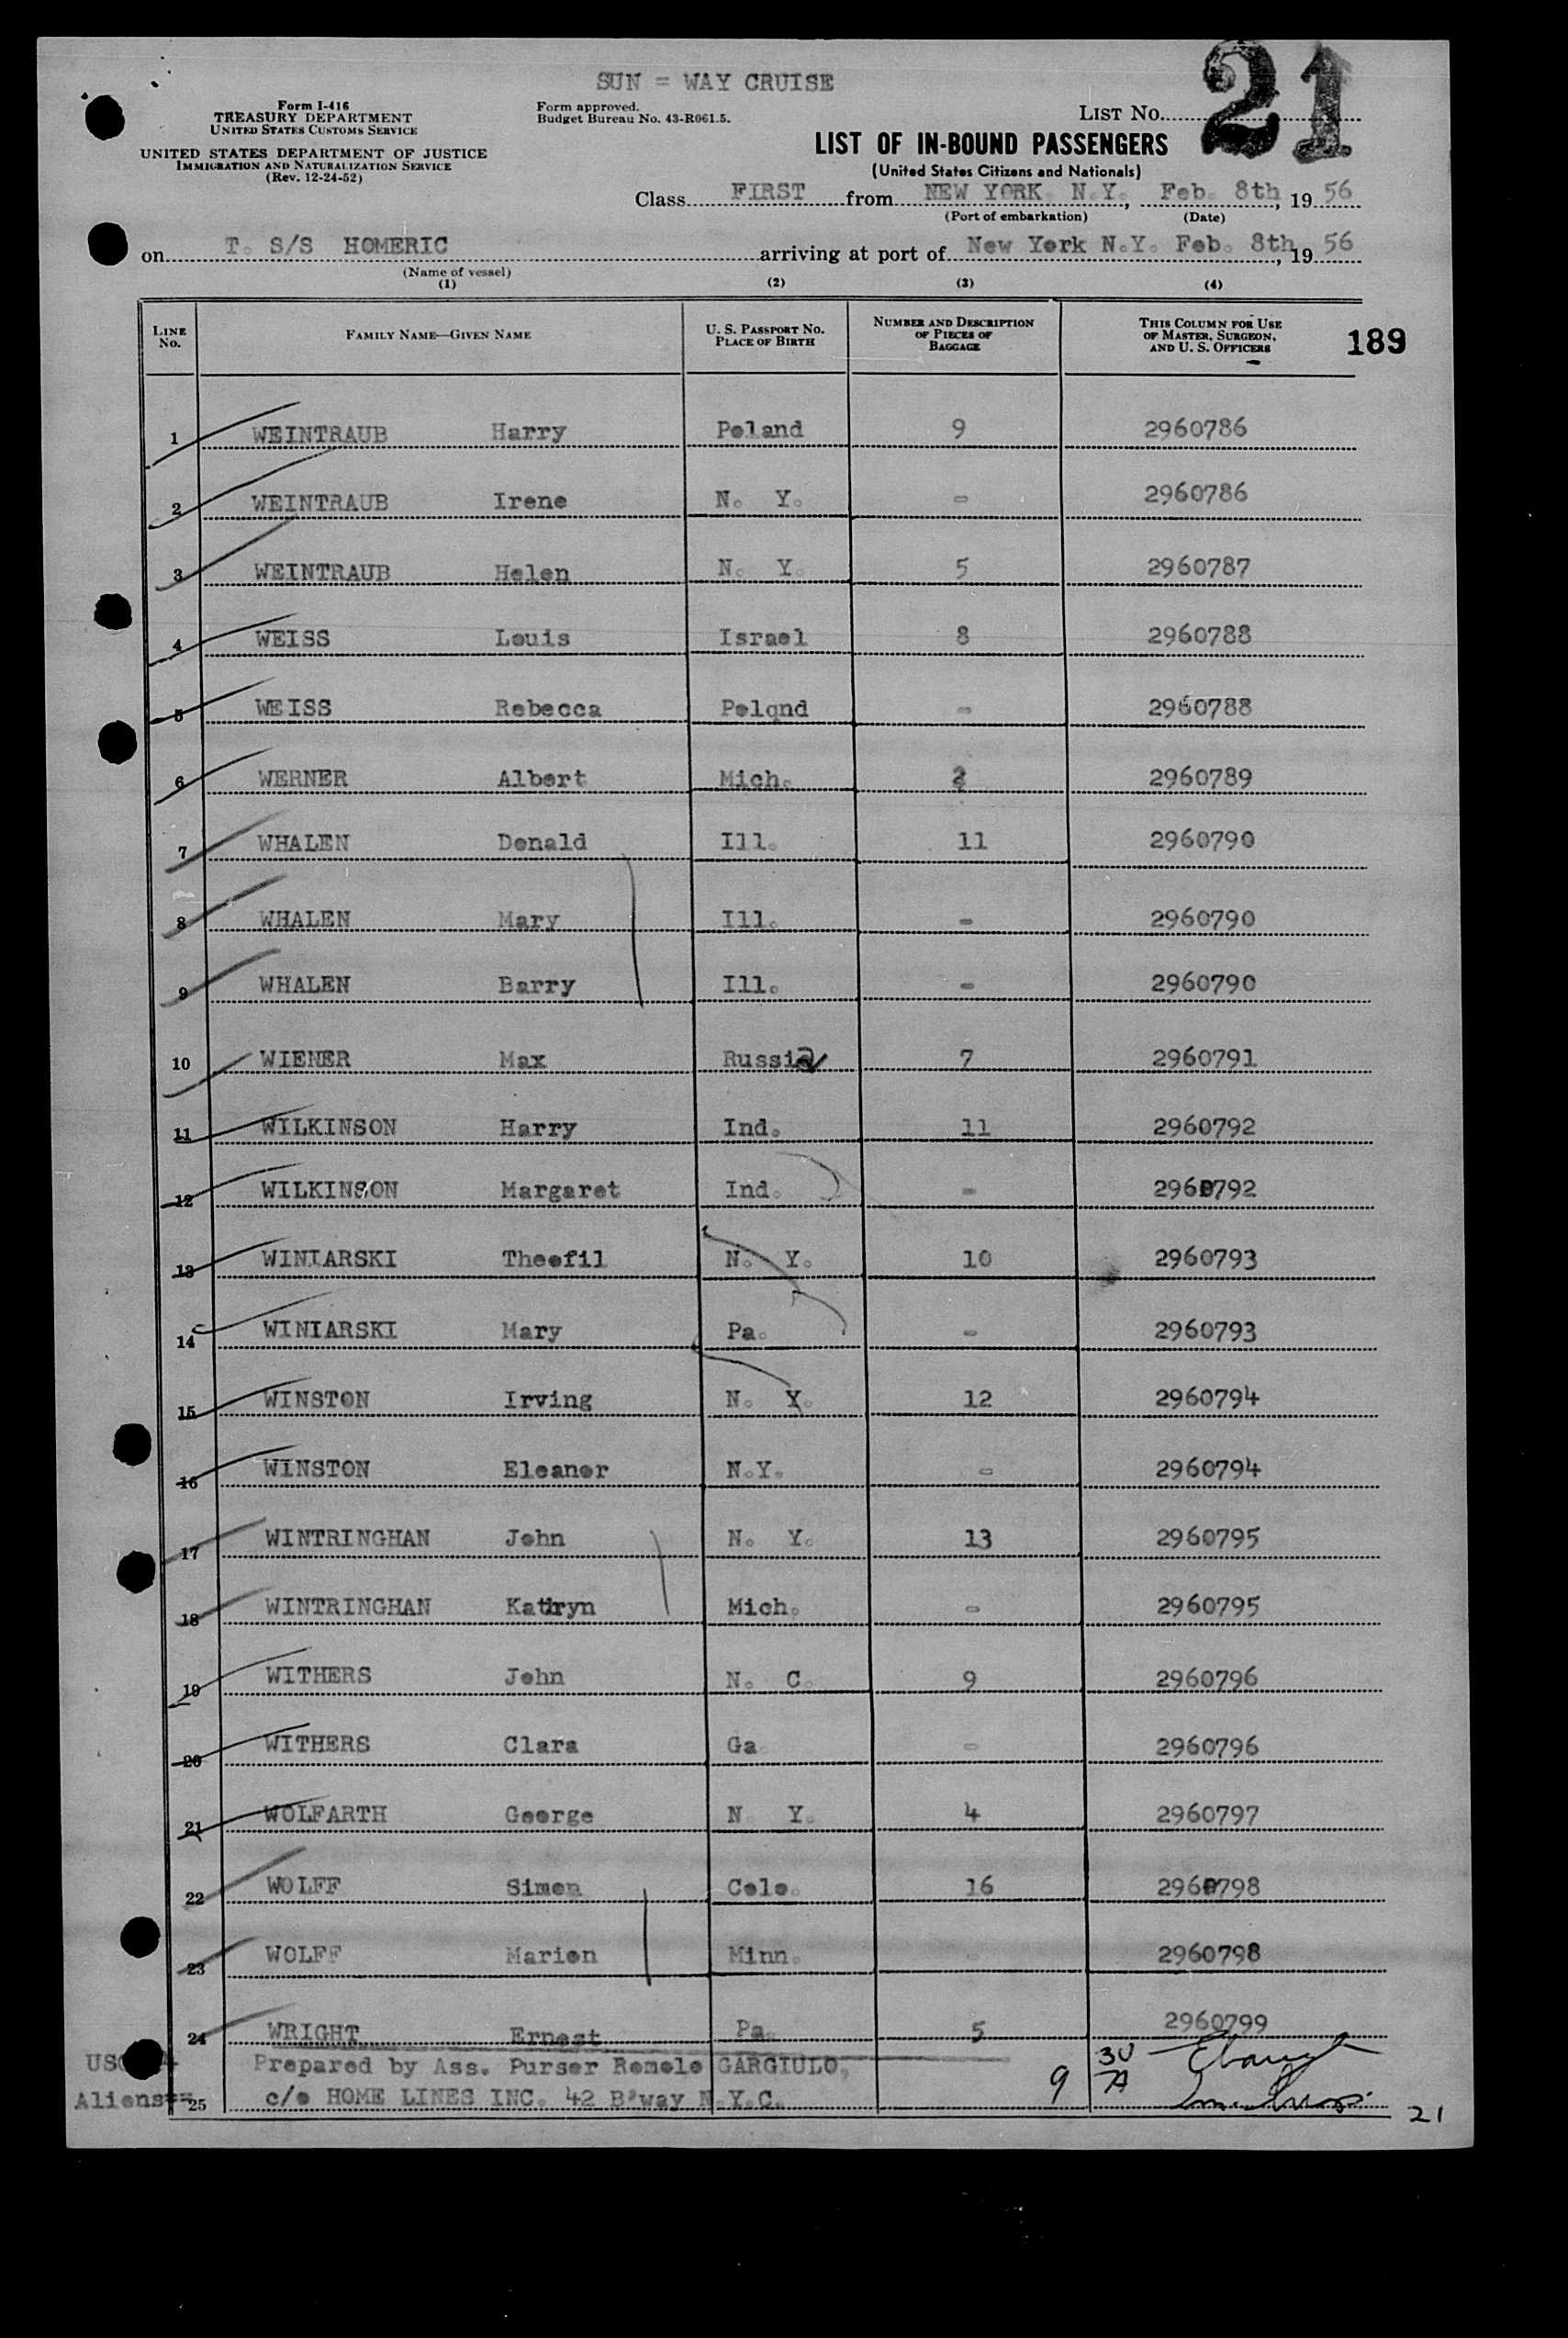 SUN = WAY CRUISE
Form I-416
TREASURY DEPARTMENT
UNITED STATES CUSTOMS SERVICE
UNITED STATES DEPARTMENT OF JUSTICE
IMMIGRATION AND NATURALIZATION SERVICE
(Rev. 12-24-52)
Form approved.
Budget Bureau No. 43-R061.5.
LIST NO. 21
LIST OF IN-BOUND PASSENGERS
(United States Citizens and Nationals)
Class FIRST from NEW YORK. N.Y., Feb. 8th, 19 56
(Port of embarkation) (Date)
on T. S/S HOMERIC arriving at port of New York N.Y. Feb. 8th, 19 56
(Name of vessel)
(1) (2) (3) (4)
LINE NO. FAMILY NAME—GIVEN NAME U. S. PASSPORT NO. PLACE OF BIRTH NUMBER AND DESCRIPTION OF PIECES OF BAGGAGE THIS COLUMN FOR USE OF MASTER, SURGEON, AND U. S. OFFICERS 189
1 WEINTRAUB Harry Poland 9 2960786
2 WEINTRAUB Irene N. Y. - 2960786
3 WEINTRAUB Helen N. Y. 5 2960787
4 WEISS Louis Israel 8 2960788
5 WEISS Rebecca Polqnd - 2960788
6 WERNER Albert Mich. 2 2960789
7 WHALEN Donald Ill. 11 2960790
8 WHALEN Mary Ill. - 2960790
9 WHALEN Barry Ill. - 2960790
10 WIENER Max Russia 7 2960791
11 WILKINSON Harry Ind. 11 2960792
12 WILKINSON Margaret Ind. - 2960792
13 WINIARSKI Theofil N. Y. 10 2960793
14 WINIARSKI Mary Pa. - 2960793
15 WINSTON Irving N. Y. 12 2960794
16 WINSTON Eleanor N.Y. - 2960794
17 WINTRINGHAN John N. Y. 13 2960795
18 WINTRINGHAN Kathryn Mich. - 2960795
19 WITHERS John N. C. 9 2960796
20 WITHERS Clara Ga - 2960796
21 WOLFARTH George N Y. 4 2960797
22 WOLFF Simon Colo. 16 2960798
23 WOLFF Marion Minn. - 2960798
24 WRIGHT Ernest Pa. 5 2960799
Prepared by Ass. Purser Romolo GARGIULO,
Aliens 25 c/o HOME LINES INC. 42 B'way N.Y.C. 9
21